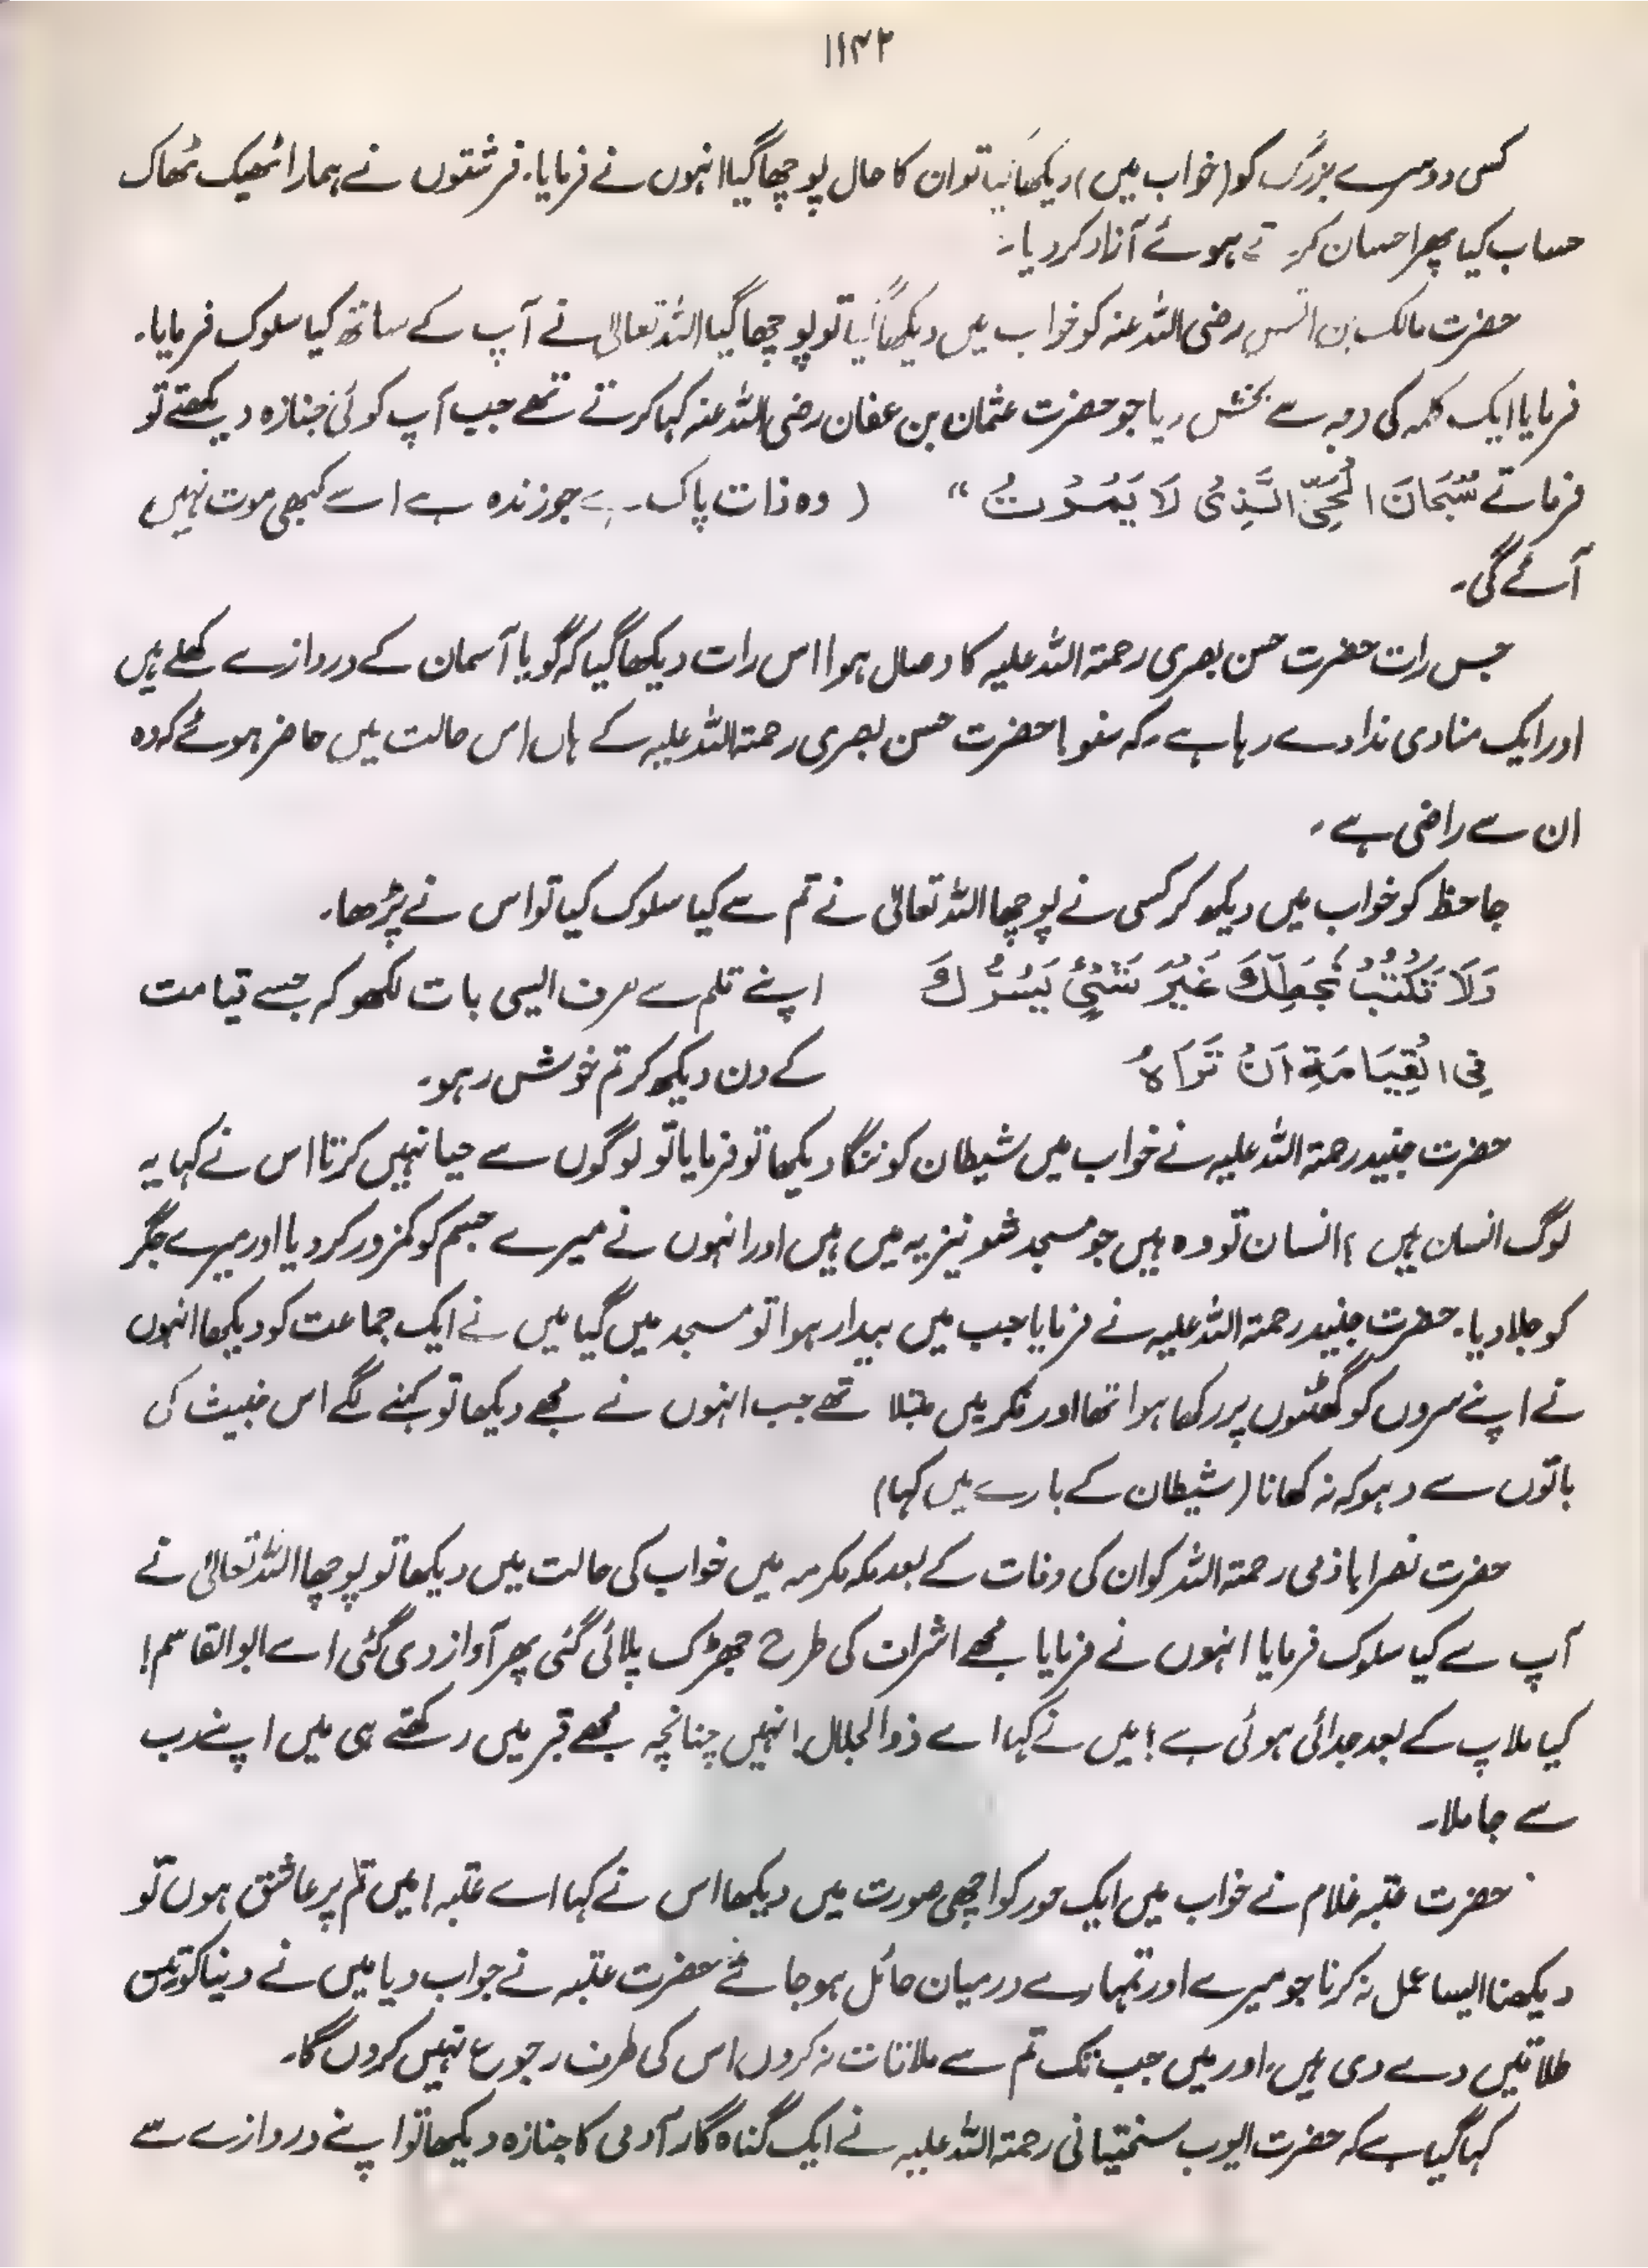 ۱۱۴۲
کسی دوسرے بزرگ کو (خواب میں) دیکھا گیا تو ان کا حال پوچھا گیا انہوں نے فرمایا۔ فرشتوں نے ہمارا ٹھیک ٹھاک
حساب کیا پھر احسان کرتے ہوئے آزاد کر دیا۔
حضرت مالک بن انس رضی اللہ عنہ کو خواب میں دیکھا گیا تو پوچھا گیا اللہ تعالیٰ نے آپ کے ساتھ کیا سلوک فرمایا۔
فرمایا ایک کلمہ کی وجہ سے بخش دیا جو حضرت عثمان بن عفان رضی اللہ عنہ کہا کرتے تھے جب آپ کوئی جنازہ دیکھتے تو
فرماتے سُبْحَانَ الْحَیِّ الَّذِیْ لَا یَمُوْتُ “ ( وہ ذات پاک ہے جو زندہ ہے اسے کبھی موت نہیں
آئے گی۔
جس رات حضرت حسن بصری رحمۃ اللہ علیہ کا وصال ہوا اس رات دیکھا گیا کہ گویا آسمان کے دروازے کھلے ہیں
اور ایک منادی ندا دے رہا ہے کہ سنو! حضرت حسن بصری رحمۃ اللہ علیہ کے ہاں اس حالت میں حاضر ہوئے کہ وہ
ان سے راضی ہے۔
جاحظ کو خواب میں دیکھ کر کسی نے پوچھا اللہ تعالیٰ نے تم سے کیا سلوک کیا تو اس نے پڑھا۔
وَلَا تَكْتُبْ بِخَطِّكَ غَيْرَ شَيْءٍ يَسُرُّكَ اپنے قلم سے صرف ایسی بات لکھو کہ جسے قیامت
فِي الْقِيَامَةِ اَنْ تَرَاهُ کے دن دیکھ کر تم خوش رہو۔
حضرت جنید رحمۃ اللہ علیہ نے خواب میں شیطان کو ننگا دیکھا تو فرمایا تو لوگوں سے حیا نہیں کرتا اس نے کہا یہ
لوگ انسان ہیں ؟ انسان تو وہ ہیں جو مسجد شونیزیہ میں ہیں اور انہوں نے میرے جسم کو کمزور کر دیا اور میرے جگر
کو جلا دیا۔ حضرت جنید رحمۃ اللہ علیہ نے فرمایا جب میں بیدار ہوا تو مسجد میں گیا میں نے ایک جماعت کو دیکھا انہوں
نے اپنے سروں کو گھٹنوں پر رکھا ہوا تھا اور فکر میں مبتلا تھے جب انہوں نے مجھے دیکھا تو کہنے لگے اس خبیث کی
باتوں سے دہوکہ نہ کھانا (شیطان کے بارے میں کہا)
حضرت نصرابازمی رحمۃ اللہ کو ان کی وفات کے بعد مکہ مکرمہ میں خواب کی حالت میں دیکھا تو پوچھا اللہ تعالیٰ نے
آپ سے کیا سلوک فرمایا انہوں نے فرمایا مجھے اشراف کی طرح جھڑک پلائی گئی پھر آواز دی گئی اے ابو القاسم!
کیا ملاپ کے بعد جدائی ہوئی ہے؛ میں نے کہا اے ذو الجلال! نہیں چنانچہ مجھے قبر میں رکھتے ہی میں اپنے رب
سے جا ملا۔
حضرت عتبہ غلام نے خواب میں ایک حور کو اچھی صورت میں دیکھا اس نے کہا اے عتبہ! میں تم پر عاشق ہوں تو
دیکھنا ایسا عمل نہ کرنا جو میرے اور تمہارے درمیان حائل ہو جائے حضرت عتبہ نے جواب دیا میں نے دنیا کو تین
طلاقیں دے دی ہیں، اور میں جب تک تم سے ملاقات نہ کروں اس کی طرف رجوع نہیں کروں گا۔
کہا گیا ہے کہ حضرت ایوب سختیانی رحمۃ اللہ علیہ نے ایک گناہ گار آدمی کا جنازہ دیکھا تو اپنے دروازے سے